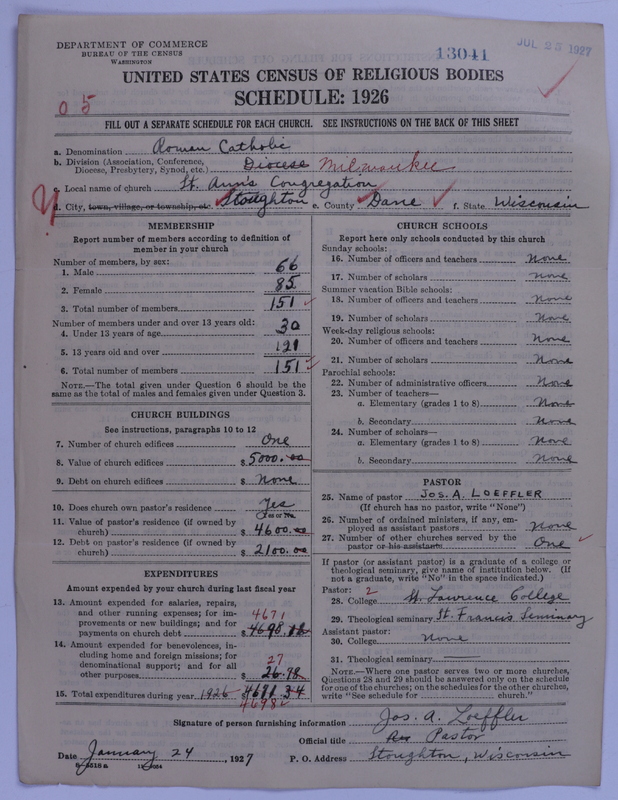 DEPARTMENT OF COMMERCE
BUREAU OF THE CENSUS
WASHINGTON
13041
JUL 25 1927
UNITED STATES CENSUS OF RELIGIOUS BODIES
SCHEDULE: 1926
0 5
FILL OUT A SEPARATE SCHEDULE FOR EACH CHURCH. SEE INSTRUCTIONS ON THE BACK OF THIS SHEET
a. Denomination Roman Catholic
b. Division (Association, Conference, Diocese, Presbytery, Synod, etc.) Diocese Milwaukee
c. Local name of church St. Ann's Congregation
d. City, town, village, or township, etc. Stoughton e. County Dane f. State Wisconsin
MEMBERSHIP
Report number of members according to definition of
member in your church
Number of members, by sex:
1. Male 66
2. Female 85
3. Total number of members 151
Number of members under and over 13 years old:
4. Under 13 years of age 30
5. 13 years old and over 121
6. Total number of members 151
NOTE.—The total given under Question 6 should be
same as the total of males and females given under Question 3.
CHURCH BUILDINGS
See instructions, paragraphs 10 to 12
7. Number of church edifices One
8. Value of church edifices $ 5000.00
9. Debt on church edifices $ None
10. Does church own pastor's residence Yes
Yes or No.
11. Value of pastor's residence (if owned by
church) $ 4600.00
12. Debt on pastor's residence (if owned by
church) $ 2100.00
EXPENDITURES
Amount expended by your church during last fiscal year
13. Amount expended for salaries, repairs,
and other running expenses; for im-
provements or new buildings; and for 4671
payments on church debt $
14. Amount expended for benevolences, in-
cluding home and foreign missions; for
denominational support; and for all 27
other purposes $ 26.98
15. Total expenditures during year 1926 $
4698
CHURCH SCHOOLS
Report here only schools conducted by this church
Sunday schools:
16. Number of officers and teachers None
17. Number of scholars None
Summer vacation Bible schools:
18. Number of officers and teachers None
19. Number of scholars None
Week-day religious schools:
20. Number of officers and teachers None
21. Number of scholars None
Parochial schools:
22. Number of administrative officers None
23. Number of teachers—
a. Elementary (grades 1 to 8) None
b. Secondary None
24. Number of scholars—
a. Elementary (grades 1 to 8) None
b. Secondary None
PASTOR
25. Name of pastor JOS. A. LOEFFLER
(If church has no pastor, write "None")
26. Number of ordained ministers, if any, em-
ployed as assistant pastors None
27. Number of other churches served by the
pastor or his assistants One
If pastor (or assistant pastor) is a graduate of a college or
theological seminary, give name of institution below. (If
not a graduate, write "No" in the space indicated.)
Pastor: 2
28. College St. Lawrence College
29. Theological seminary St. Francis Seminary
Assistant pastor:
30. College None
31. Theological seminary
NOTE.—Where one pastor serves two or more churches,
Questions 28 and 29 should be answered only on the schedule
for one of the churches; on the schedules for the other churches,
write "See schedule for church."
Signature of person furnishing information Jos. A. Loeffler
Official title Pastor
Date January 24, 1927 P. O. Address Stoughton, Wisconsin